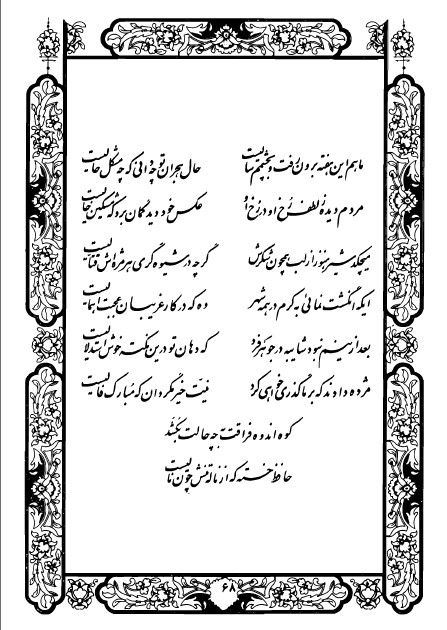 ماهم این هفته برون رفت و بچشمم سالیست
حال هجران تو چه دانی که چه مشکل حالیست
مردم دیده ز لطف رخ او در رخ او
عکس خود دید گمان برد که مشکین خالیست
میچکد شیر هنوز از لب همچون شکرش
گر چه در شیوه گری هر مژه اش قتالیست
ایکه انگشت نمائی به کرم در همه شهر
وه که در کار غریبان عجبت اهمالیست
بعد ازینم نبود شایبه در جوهر فرد
که دهان تو درین نکته خوش استدلالیست
مژده دادند که بر ما گذری خواهی کرد
نیت خیر مگردان که مبارک فالیست
کوه اندوه فراقت بچه حالت بکشد
حافظ خسته که از ناله تنش چون نالیست
۶۸